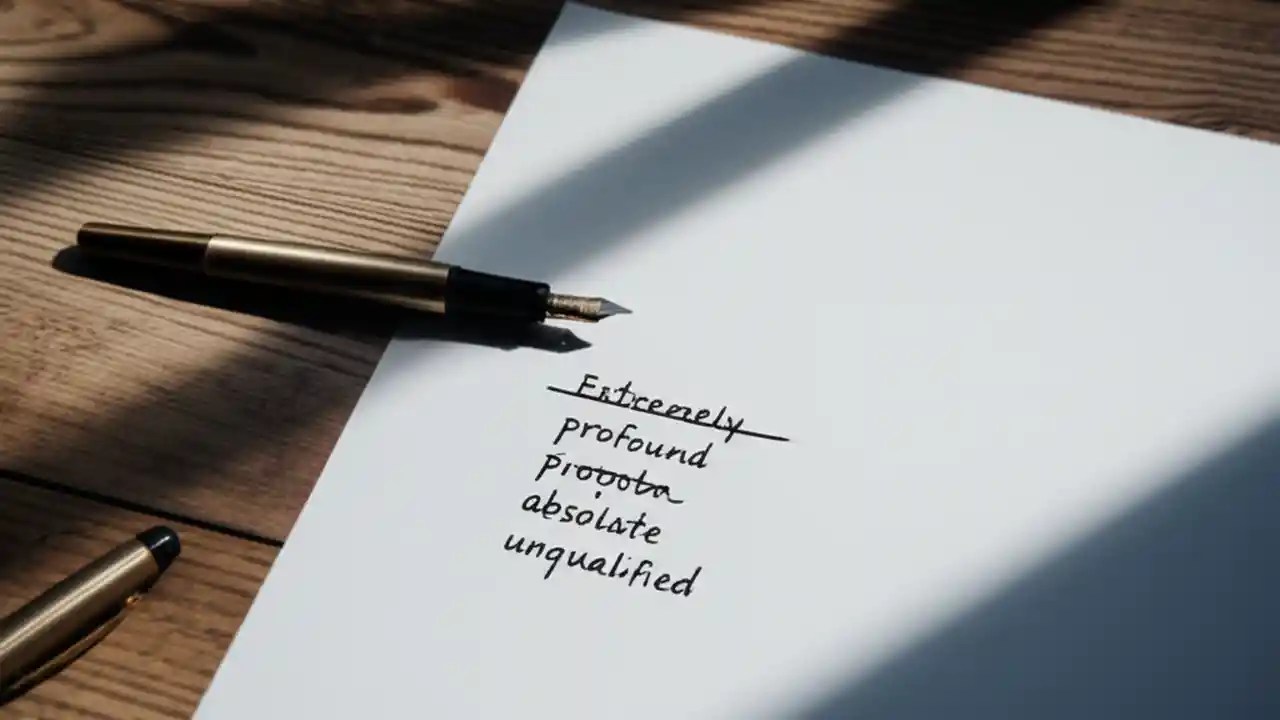 Extremely
profound
absolate
unqualified